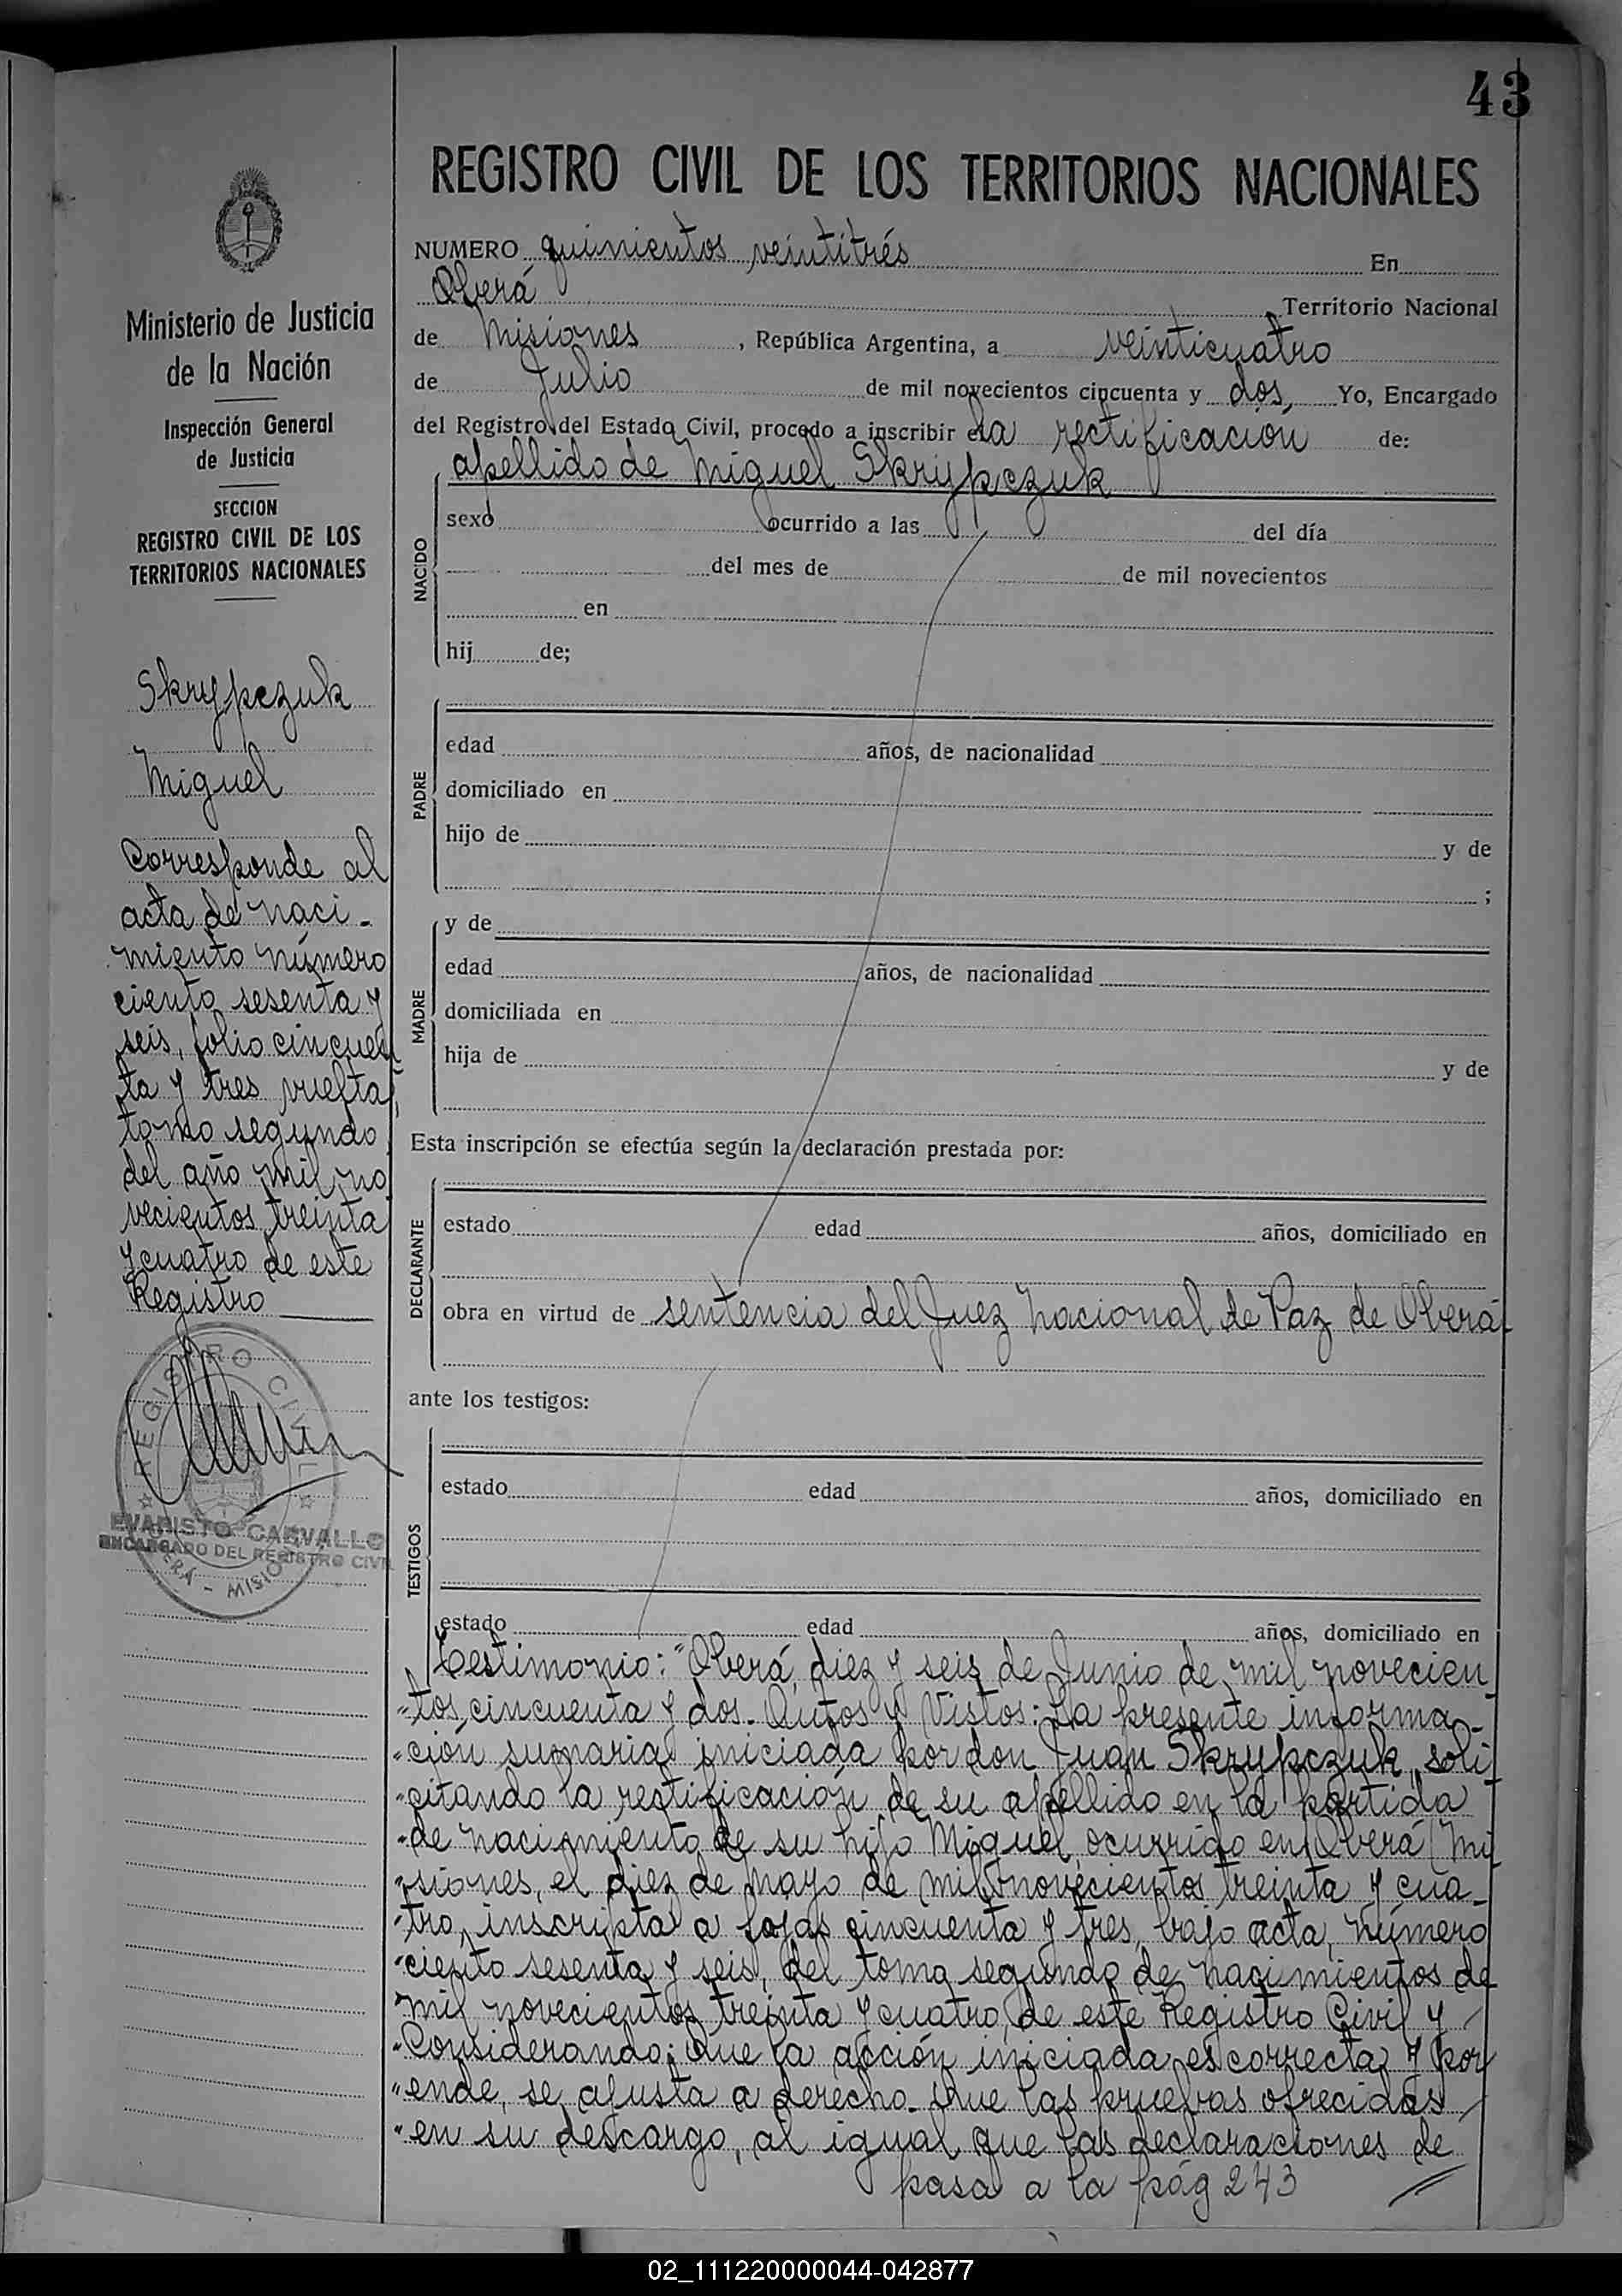 43
REGISTRO CIVIL DE LOS TERRITORIOS NACIONALES
NUMERO quinientos veintitrés En
Oberá Territorio Nacional
de Misiones, República Argentina, a veinticuatro
de Julio de mil novecientos cincuenta y dos, Yo, Encargado
del Registro del Estado Civil, procedo a inscribir el la rectificacion de:
apellido de Miguel Skrypczuk
NACIDO
sexo ocurrido a las del día
del mes de de mil novecientos
en
hij de;
PADRE
edad años, de nacionalidad
domiciliado en
hijo de y de
;
MADRE
y de
edad años, de nacionalidad
domiciliada en
hija de y de
Esta inscripción se efectúa según la declaración prestada por:
DECLARANTE
estado edad años, domiciliado en
obra en virtud de sentencia del Juez Nacional de Paz de Oberá
ante los testigos:
TESTIGOS
estado edad años, domiciliado en
estado edad años, domiciliado en
Testimonio: "Oberá, diez y seis de Junio de mil novecien
"tos cincuenta y dos. Autos y Vistos: La presente informa-
"ción sumaria iniciada por don Juan Skrypczuk, soli
"citando la rectificación de su apellido en la partida
"de nacimiento de su hijo Miguel, ocurrido en Oberá (Mi
"siones, el diez de mayo de mil novecientos treinta y cua-
"tro, inscripta a fojas cincuenta y tres, bajo acta, número
"ciento sesenta y seis, del tomo segundo de nacimientos de
"mil novecientos treinta y cuatro, de este Registro Civil y
"Considerando: Que la acción iniciada es correcta y por
"ende, se ajusta a derecho. Que las pruebas ofrecidas
"en su descargo, al igual que las declaraciones de
pasa a la pág 243
Ministerio de Justicia
de la Nación
Inspección General
de Justicia
SECCION
REGISTRO CIVIL DE LOS
TERRITORIOS NACIONALES
Skrypczuk
Miguel
Corresponde al
acta de naci-
miento número
ciento sesenta y
seis, folio cincuen
ta y tres vuelta,
tomo segundo
del año mil no
vecientos treinta
y cuatro de este
Registro
REGISTRO CIVIL
EVARISTO CARVALLO
ENCARGADO DEL REGISTRO CIVIL
OBERÁ - MISIONES
02_111220000044-042877